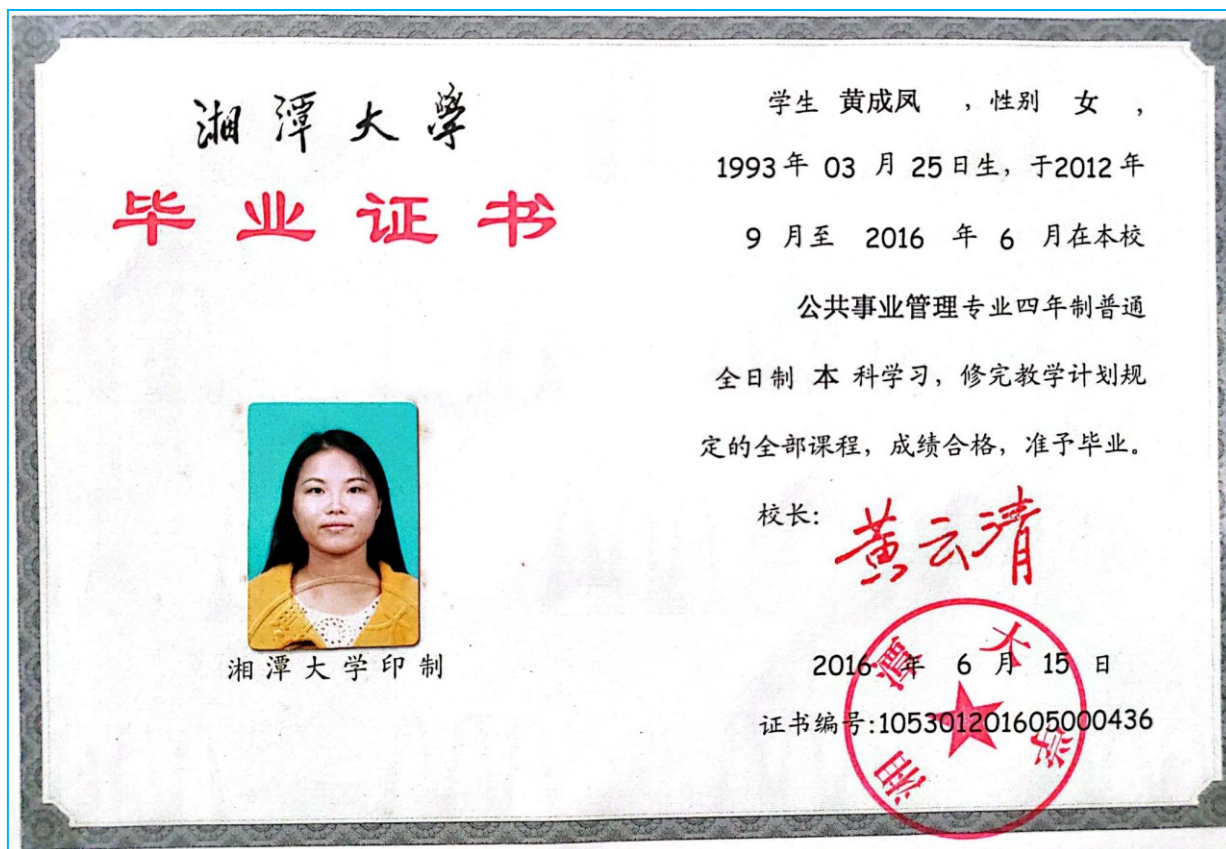 湘潭大學
毕业证书
湘潭大学印制
学生 黄成凤 ，性别 女 ，
1993年 03 月 25日生，于2012年
9 月至 2016 年 6 月在本校
公共事业管理专业四年制普通
全日制 本 科学习，修完教学计划规
定的全部课程，成绩合格，准予毕业。
校长：
黄云清
2016 年 6 月 15 日
证书编号:105301201605000436
湘潭大学